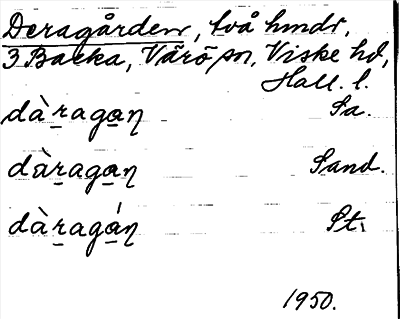 Deragården, två hmdr,
3 Backa, Värö sn, Viske hd,
Hall. l.
dàragaṇ Sa.
dàragaṇ Sand.
dàragáṇ St.
1950.